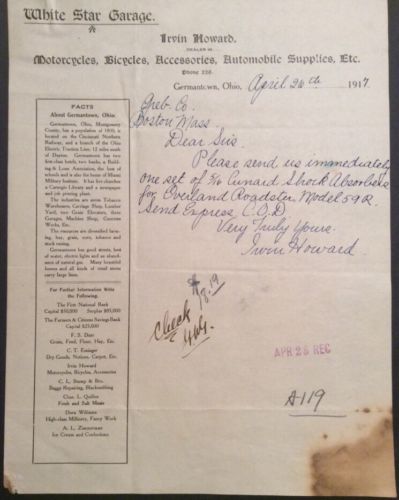 White Star Garage.
Irvin Howard.
DEALER IN
Motorcycles, Bicycles, Accessories, Automobile Supplies, Etc.
Phone 220
Germantown, Ohio, April 26th 1917
Greb. Co.
Boston Mass
Dear Sirs.
Please send us immediately
one set of 5/16 Cunard Shock Absorbers
for Overland Roadster Model 59R.
Send Express C.O.D.
Very Truly Yours.
Irvin Howard.
FACTS
About Germantown, Ohio:
Germantown, Ohio, Montgomery
County, has a population of 1800, is
located on the Cincinnati Northern
Railway, and a branch of the Ohio
Electric Traction Line, 12 miles south
of Dayton. Germantown has two
first-class hotels, two banks, a Build-
ing & Loan Association, the best of
schools and is also the home of Miami
Military Institute. It has fire churches
a Carnegie Library and a newspaper
and job printing plant.
The industries are seven Tobacco
Warehouses, Carriage Shop, Lumber
Yard, two Grain Elevators, three
Garages, Machine Shop, Concrete
Works, Etc.
The resources are diversified farm-
ing, hay, grain, oats, tobacco and
stock raising.
Germantown has good streets, best
of water, electric lights and an abund-
ance of natural gas. Many beautiful
homes and all kinds of retail stores
carry large lines.
For Further Information Write
the Following.
The First National Bank
Capital $50,000 Surplus $85,000
The Farmers & Citizens Savings Bank
Capital $25,000
F. S. Durr
Grain, Feed, Flour, Hay, Etc.
C. T. Eminger
Dry Goods, Notions, Carpet, Etc.
Irvin Howard
Motorcycles, Bicycles, Accessories
C. L. Stump & Bro.
Buggy Repairing, Blacksmithing
Chas. L. Quillen
Fresh and Salt Meats
Dora Williams
High-class Millinery, Fancy Work
A. L. Zimmerman
Ice Cream and Confections
18.19
check
APR 28 REC
A119